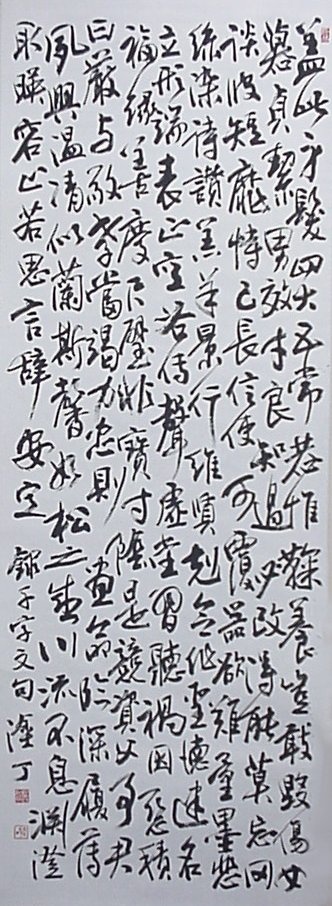 蓋此身髮四大五常恭惟鞠養豈敢毀傷女
慕貞絜男效才良知過必改得能莫忘罔
談彼短靡恃己長信使可覆器欲難量墨悲
絲染詩讚羔羊景行維賢克念作聖德建名
立形端表正空谷傳聲虛堂習聽禍因惡積
福緣善慶尺璧非寶寸陰是競資父事君
曰嚴與敬孝當竭力忠則盡命臨深履薄
夙興溫清似蘭斯馨如松之盛川流不息淵澄
取暎容止若思言辭安定
錄千字文句